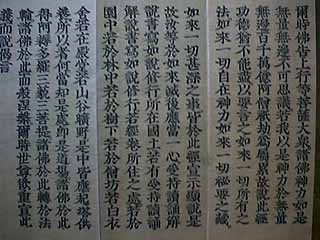 爾時佛告上行等菩薩大衆諸佛神力如是
無量無邊不可思議若我以是神力於無量
無邊百千萬億阿僧祇劫爲囑累故說此經
功德猶不能盡以要言之如來一切所有之
法如來一切自在神力如來一切祕要之藏
如來一切甚深之事皆於此經宣示顯說是
故汝等於如來滅後應當一心受持讀誦解
說書寫如說修行所在國土若有受持讀誦
解說書寫如說修行若經卷所住之處若於
園中若於林中若於樹下若於僧坊若白衣
舍若在殿堂若山谷曠野是中皆應起塔供
養所以者何當知是處卽是道場諸佛於此
得阿耨多羅三藐三菩提諸佛於此轉於法
輪諸佛於此而般涅槃爾時世尊欲重宣此
義而說偈言